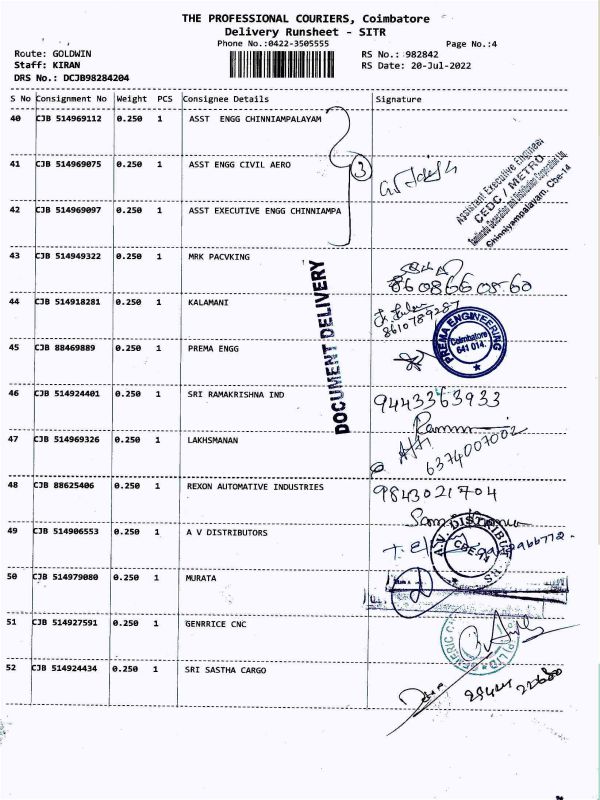 THE PROFESSIONAL COURIERS, Coimbatore
Delivery Runsheet - SITR
Phone No.:0422-3505555
Page No.:4
Route: GOLDWIN
RS No.: 982842
Staff: KIRAN
RS Date: 20-Jul-2022
DRS No.: DCJB98284204
S No Consignment No Weight PCS Consignee Details Signature
40 CJB 514969112 0.250 1 ASST ENGG CHINNIAMPALAYAM
41 CJB 514969075 0.250 1 ASST ENGG CIVIL AERO
3
Assistant Executive Engineer
CEDC / METRO
Chinniyampalayam, Cbe-14
42 CJB 514969097 0.250 1 ASST EXECUTIVE ENGG CHINNIAMPA
43 CJB 514949322 0.250 1 MRK PACVKING
8608660560
DOCUMENT DELIVERY
44 CJB 514918281 0.250 1 KALAMANI
8610789287
45 CJB 88469889 0.250 1 PREMA ENGG
PREMA ENGINEERING
Coimbatore
641 014.
46 CJB 514924401 0.250 1 SRI RAMAKRISHNA IND
9443363933
47 CJB 514969326 0.250 1 LAKHSMANAN
6374007002
48 CJB 88625406 0.250 1 REXON AUTOMATIVE INDUSTRIES
9843021704
49 CJB 514906553 0.250 1 A V DISTRIBUTORS
50 CJB 514979080 0.250 1 MURATA
51 CJB 514927591 0.250 1 GENRRICE CNC
52 CJB 514924434 0.250 1 SRI SASTHA CARGO